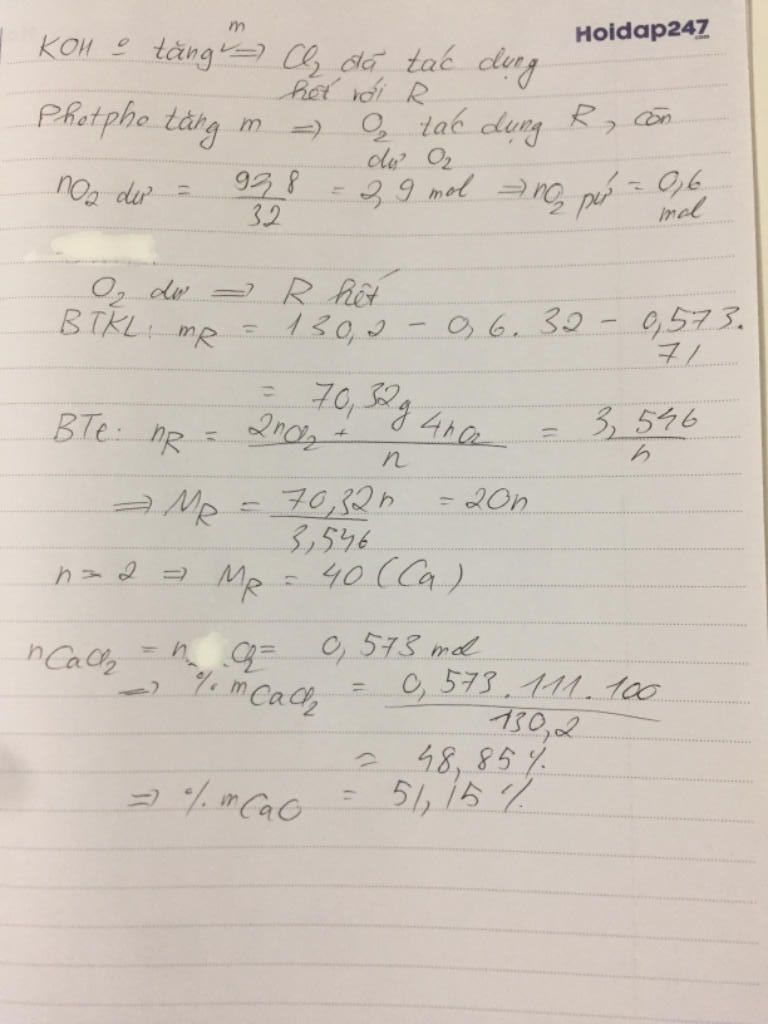 Hoidap247.com
m
KOH 0 tăng ⟹ Cl2 đã tác dụng
hết với R
Photpho tăng m ⟹ O2 tác dụng R, còn
dư O2
nO2 dư = 92,8/32 = 2,9 mol ⟹ nO2 pứ = 0,6
mol
O2 dư ⟹ R hết
BTKL: mR = 130,2 - 0,6.32 - 0,573.
71
= 70,32g
BTe: nR = (2nCl2 + 4nO2)/n = 3,546/n
⟹ MR = 70,32n/3,546 = 20n
n = 2 ⟹ MR = 40 (Ca)
nCaCl2 = nCl2 = 0,573 mol
⟹ %mCaCl2 = 0,573.111.100/130,2
= 48,85%
⟹ %mCaO = 51,15%